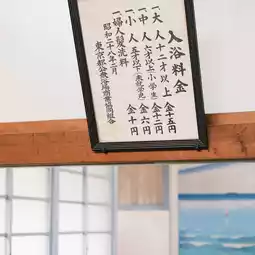 入浴料金
一大人 十二才以上 金十五円
一中人 六才以上(小学生) 金十二円
一小人 五才以下 金六円
一婦人髪洗料 金十円
昭和二十六年二月
東京都公衆浴場商業協同組合